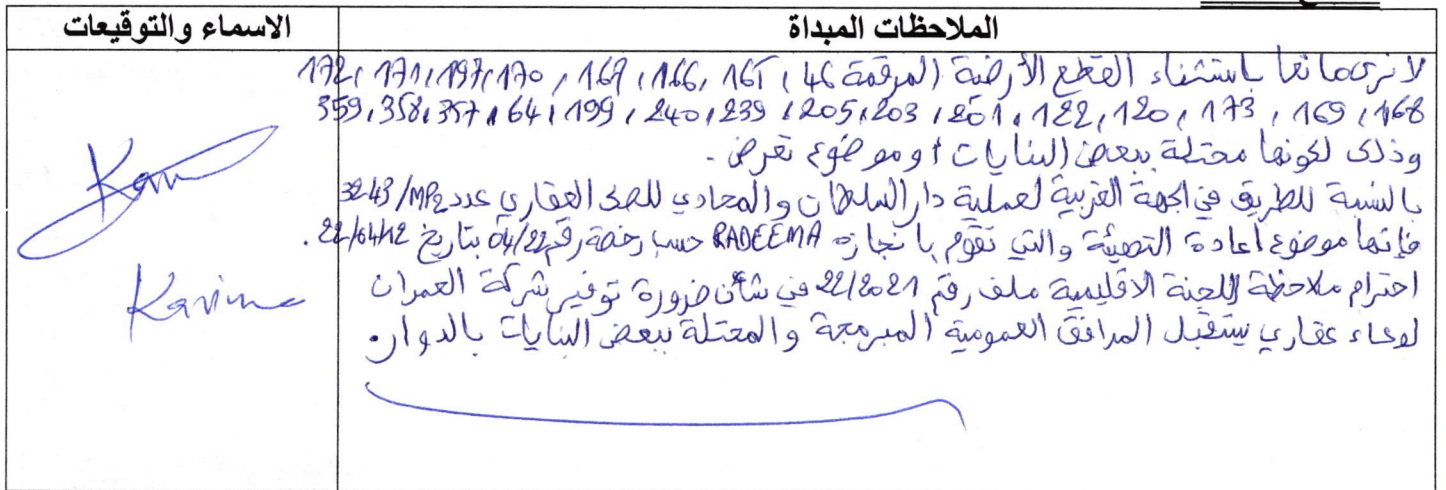 الملاحظات المبداة
الاسماء والتوقيعات
لا نرى مانعا باستثناء القطع الأرضية المرقمة 46، 165، 166، 167، 170، 197، 171، 172
168، 169، 173، 120، 122، 201، 203، 205، 239، 240، 199، 64، 357، 358، 359
وذلك لكونها محتلة ببعض البنايات او موضوع تعرض -
بالنسبة للطريق في الجهة الغربية لعملية دار السلطان والمحادي للصك العقاري عدد 3243/MP2
فإنها موضوع اعادة التهيئة والتي تقوم بانجازه RADEEMA حسب رخصة رقم 04/22 بتاريخ 22/04/12.
احترام ملاحظة اللجنة الاقليمية ملف رقم 22/2021 في شأن ضرورة توفير شركة العمران
لوعاء عقاري يستقبل المرافق العمومية المبرمجة والمحتلة ببعض البنايات بالدوار.
Kam
Karima